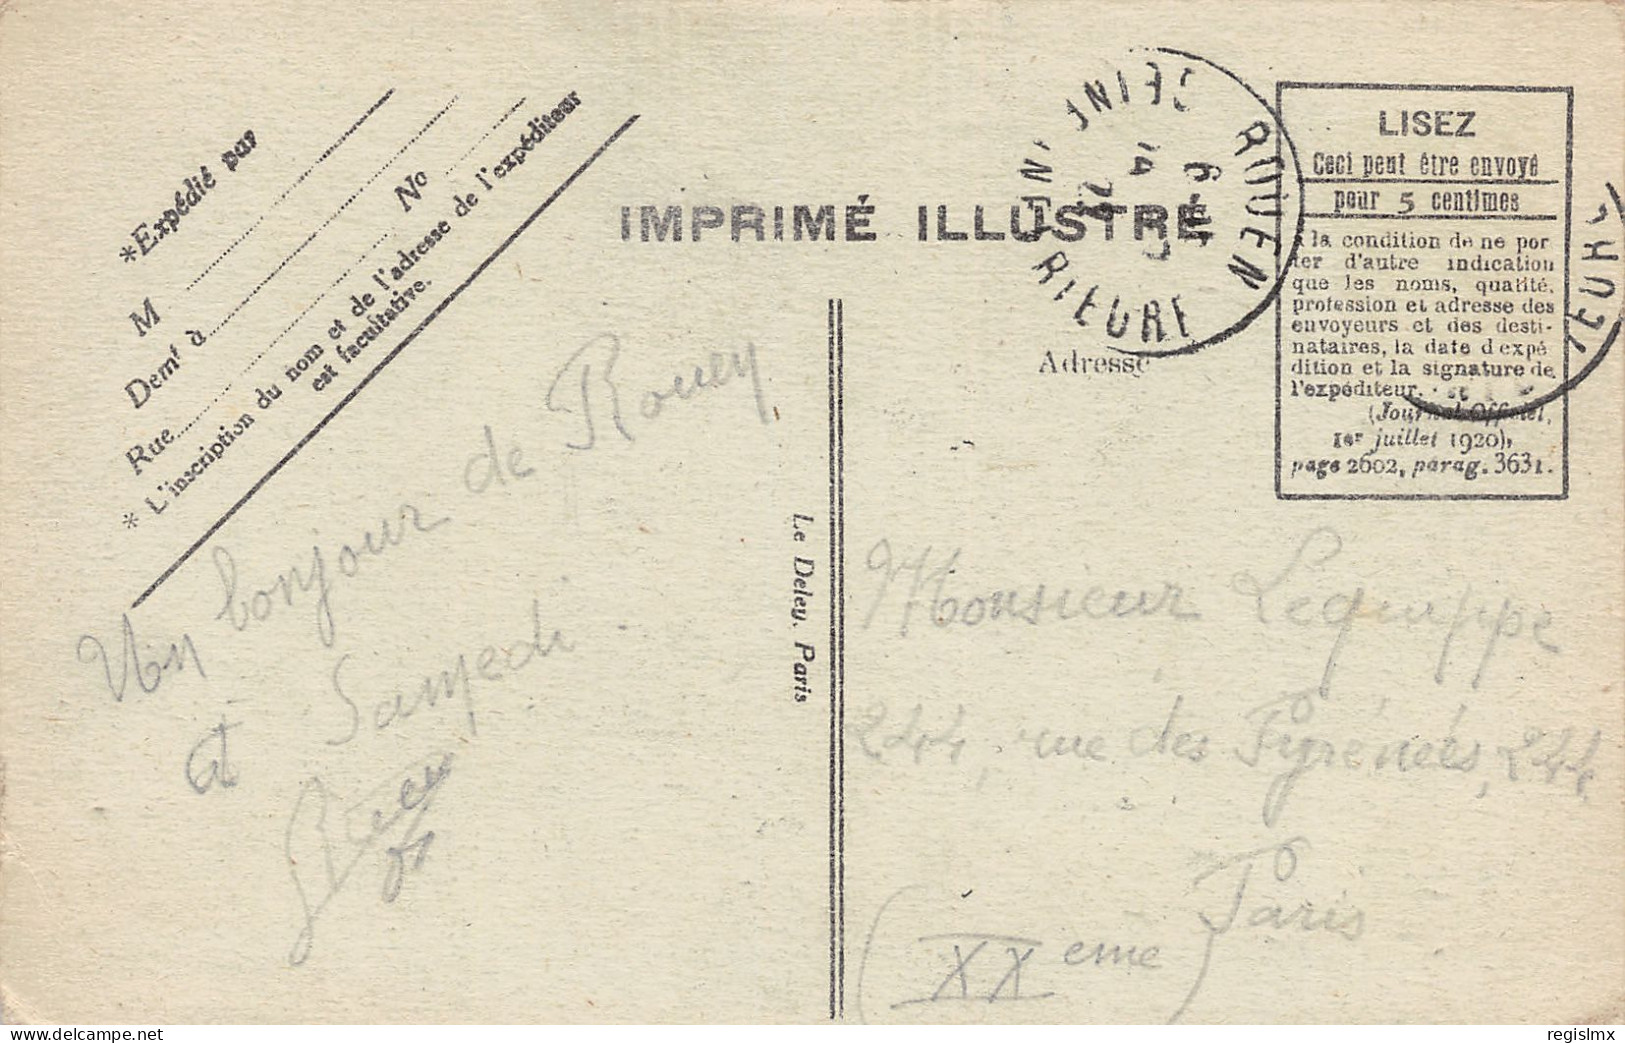 *Expédié par
M
Demt à
Rue
No
* L'inscription du nom et de l'adresse de l'expéditeur
est facultative.
IMPRIMÉ ILLUSTRÉ
ROUEN
SEINE INFÉRIEURE
LISEZ
Ceci peut être envoyé
pour 5 centimes
à la condition de ne por
ter d'autre indication
que les noms, qualité,
profession et adresse des
envoyeurs et des desti-
nataires, la date d'expé
dition et la signature de
l'expéditeur.
(Journal Officiel,
1er juillet 1920),
page 2602, parag. 3631.
Adresse
Un bonjour de Rouen
et Samedi
Le Deley, Paris
Monsieur Lequippe
244, rue des Pyrénées, 244
Paris
(XXeme)
regislmx
delcampe.net